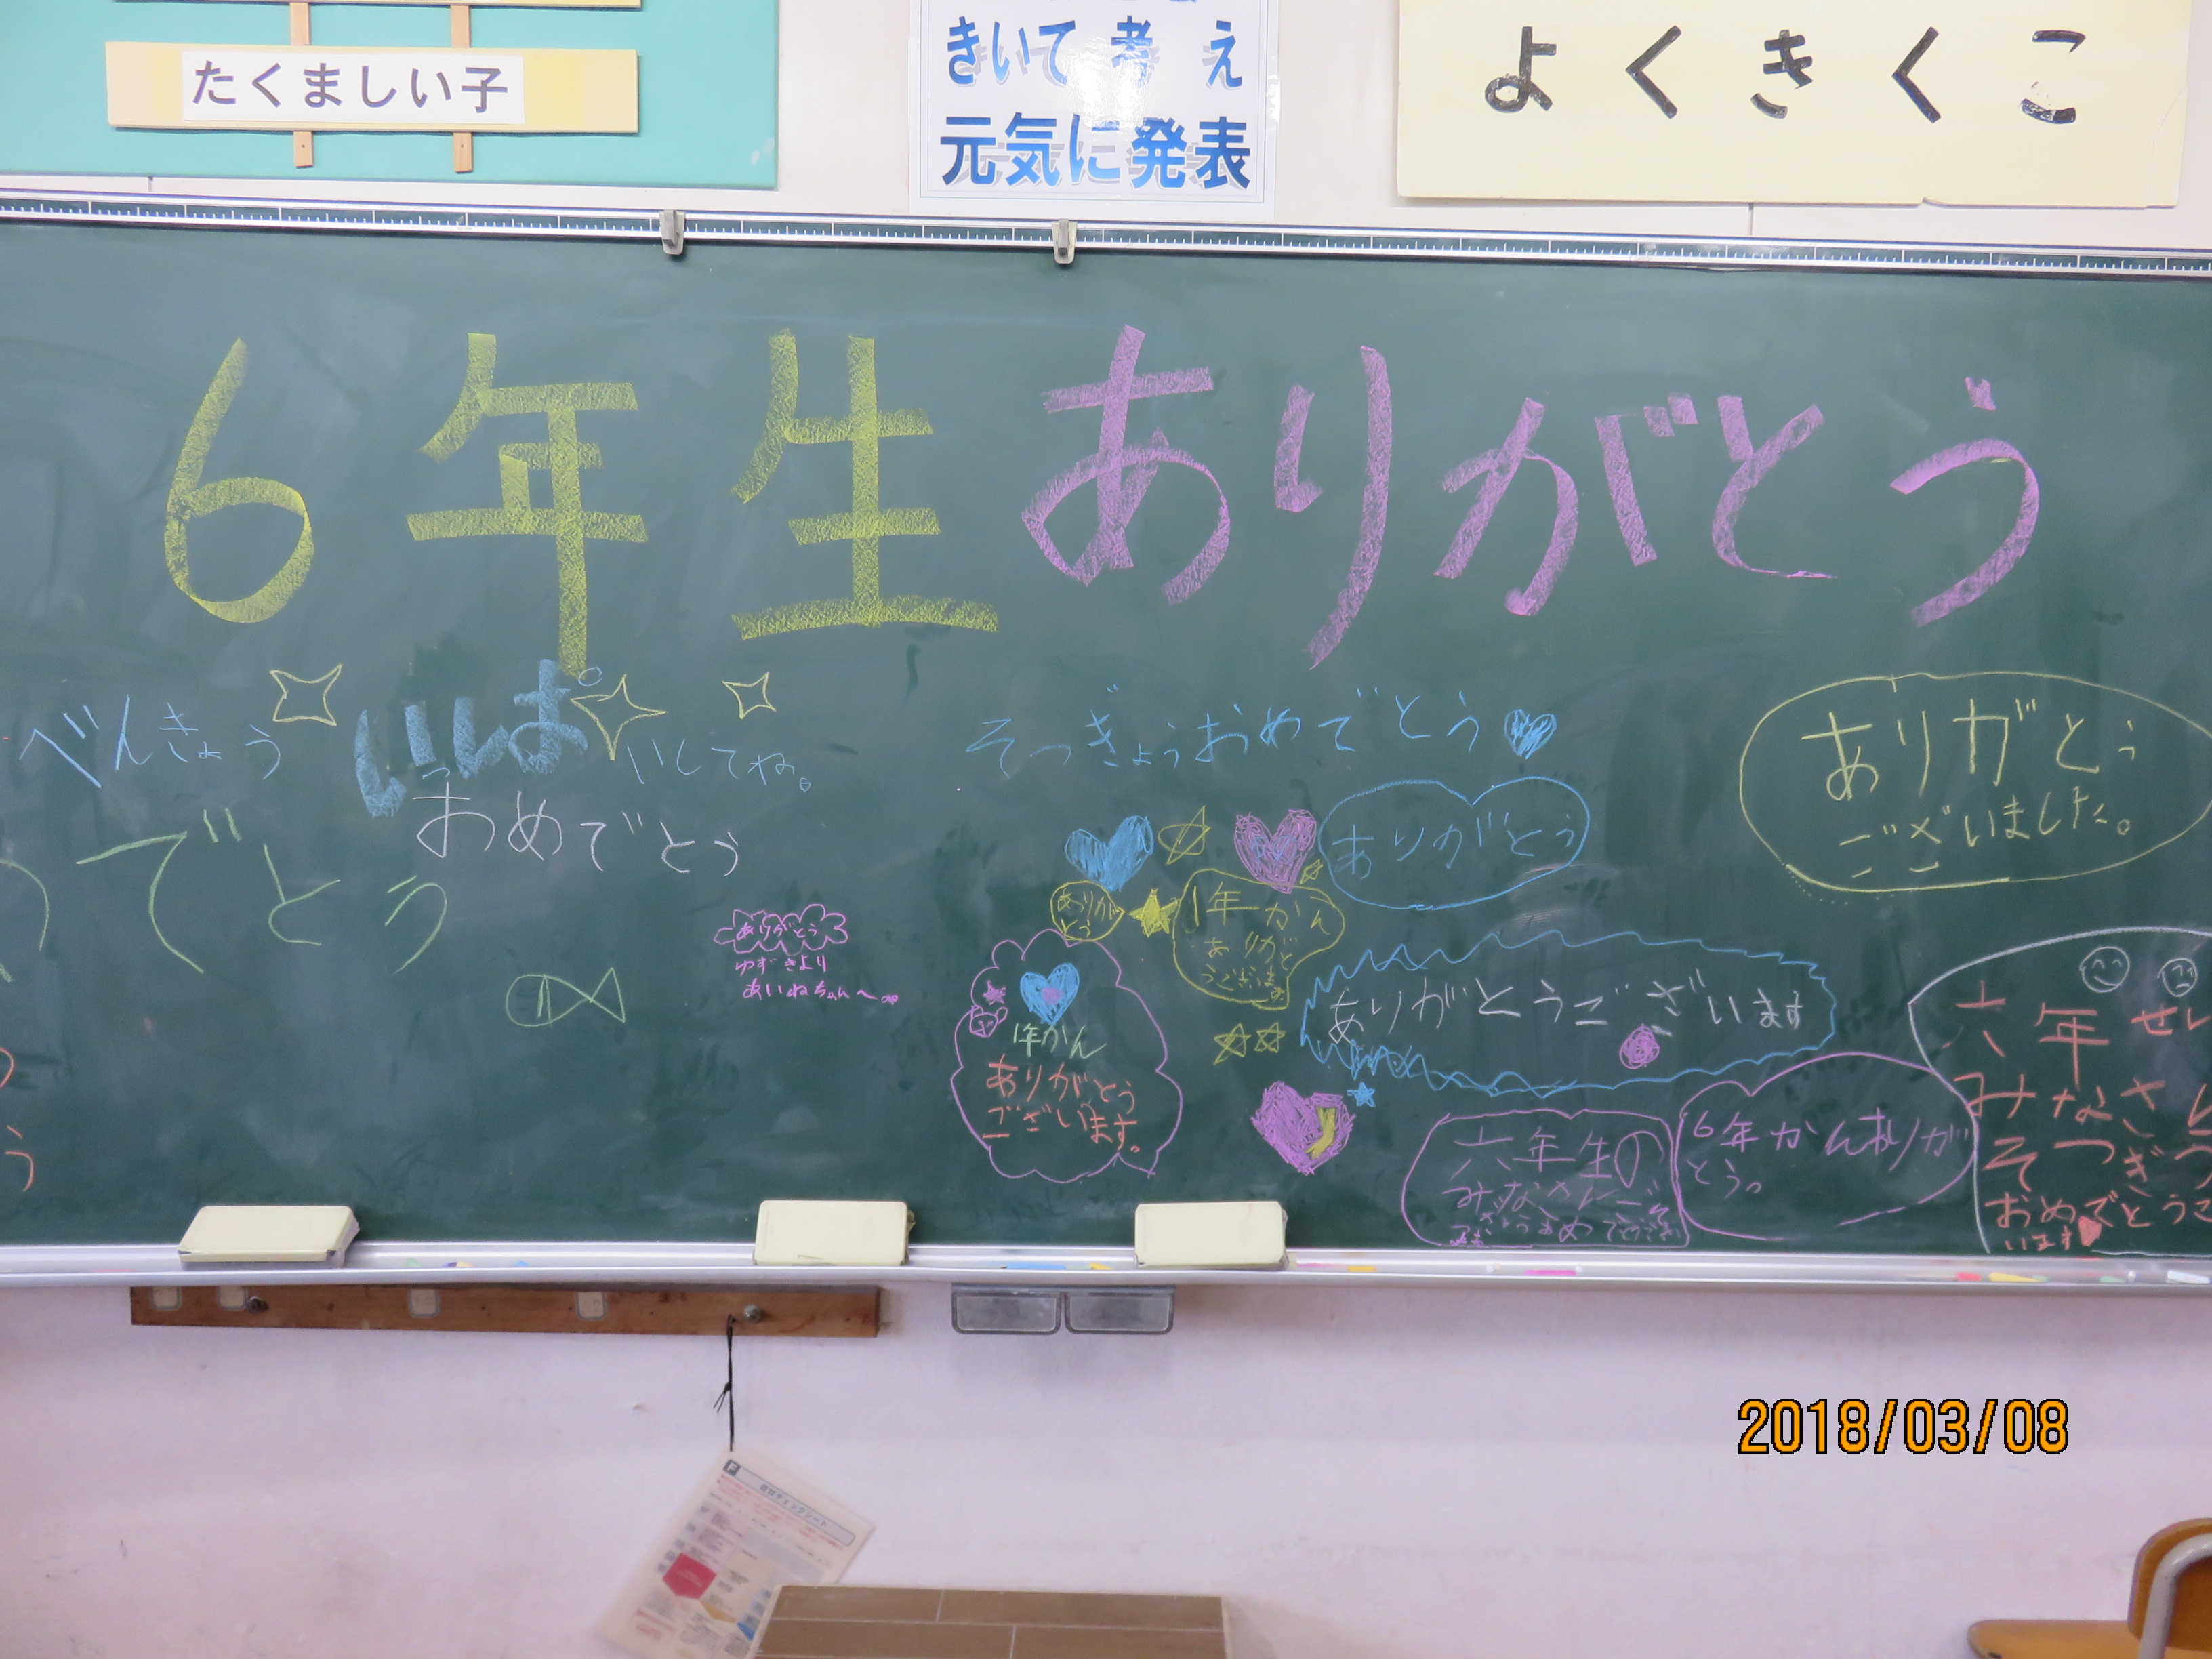 たくましい子
きいて考え
元気に発表
よくきくこ
6年生ありがとう
べんきょういっぱいしてね。
おめでとう
でとう
ありがとう
ゆずきより
あいねちゃんへ
そつぎょうおめでとう
ありがとう
ありがとう
ございました。
ありが
とう
1年かん
ありがと
うございます
1年かん
ありがとう
ございます。
ありがとうございます
六年生の
6年かんありが
とう。
六年せい
みなさん
そつぎう
おめでとうご
います
2018/03/08